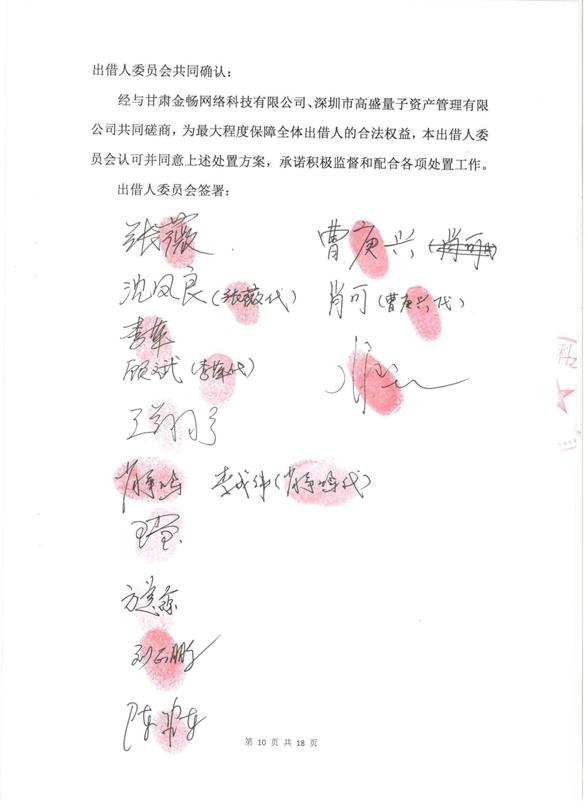 出借人委员会共同确认：
经与甘肃金畅网络科技有限公司、深圳市高盛量子资产管理有限
公司共同磋商，为最大程度保障全体出借人的合法权益，本出借人委
员会认可并同意上述处置方案，承诺积极监督和配合各项处置工作。
出借人委员会签署：
张薇 曹庚兴（肖可代）
沈凤良（张薇代） 肖可（曹庚兴代）
李华
顾斌（李华代）
王翔宇
李成伟（代）
刘正鹏
陈
第 10 页 共 18 页
科